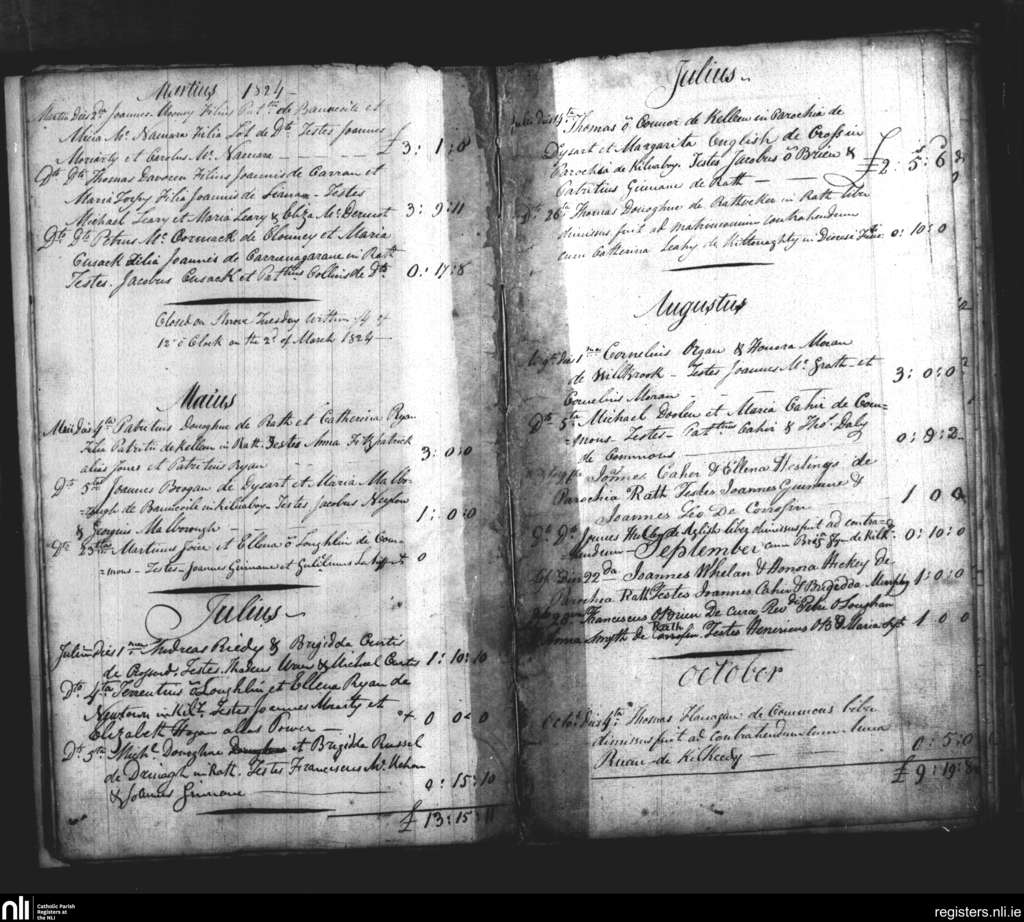 Martius 1824
Martii Dies 2da Joannes Mooney Filius Pat de et
Maria Mc Namara Filia Sol de Dto Testes Joannes
Moriarty et Carolus Mc Namara £ 3 : 1 : 8
Dto Dto Thomas Davoren Filius Joannis de Carran et
Maria Filia Joannis de Testes
Michael Leary et Maria Leary & Eliza Mc Dermot 3 : 9 : 11
Dto Dto Petrus Mc Cormack de Clouney et Maria
Cusack Filia Joannis de Carrenagarane in Rath
Testes Jacobus Cusack et Pattius Collins de Dto 0 : 17 : 8
Closed on Shrove Tuesday within 1/4 of
12 o Clock on the 2d of March 1824
Maius
Maii Dies 4ta Patritius Donoghue de Rath et Catherina Ryan
Filia Patritii de Kellen in Rath Testes Anna Fitzpatrick
alias Jones et Patritius Ryan 3 : 0 : 0
Dto 5ta Joannes Brogan de Dysart et Maria Malbo-
-rough de in Kilnaboy Testes Jacobus Neylon
& Georgius Malborough 1 : 0 : 0
Dto 23tia Martinus Joice et Ellena ō Loughlin de Com-
-mons - Testes - Joannes Guinane et Gulilmus 0
Julius
Julii Dies 1ma Andreas Reidy & Brigidda Curtis
de Testes Thadeus & Michael Curtis 1 : 10 : 10
Dto 4ta Terrentius ō Loughlin et Ellena Ryan de
Newtown in Kil Testes Joannes Moriarty et
Elizabeth Hogan alias Power 0 0 0
Dto 5ta Michl Donoghue et Brigidda Russel
de Drinagh in Rath Testes Franciscus Mc Mahon
& Joannes Guinane 0 : 15 : 10
£ 13 : 15 : 11
Julius
Julii Dies 15ta Thomas ō Connor de Kellen in Parochia de
Dysart et Margarita English de Cross in
Parochia de Kilnaboy Testes Jacobus ō Brien &
Patritius Guinane de Rath £ 2 : 5 : 6
Dto 26ta Thomas Donoghue de Rathveker in Rath liber
dimisus fuit ad matrimonium contrahendum
cum Catherina Leahy de Kiltonaghty in Diocesi 0 : 10 : 0
Augustus
Augti Dies 1ma Cornelius Organ & Honora Moran
de Willbrook - Testes Joannes Mc Grath et
Cornelius Moran 3 : 0 : 0
Dto 5ta Michael Doolen et Maria Cahir de Com-
-mons Testes Pattius Cahir & Thos Daly
de Commons 0 : 8 : 2
Joannes Caher & Ellena Hestings de
Parochia Rath Testes Joannes Guinane &
Joannes Leo De Corrofin 1 0 0
Dto Dto James de liber dimisus fuit ad contra-
hendum cum de Kil 0 : 10 : 0
September
Dies 22da Joannes Whelan & Honora Hickey de
Parochia Rath Testes Joannes Caher & Brigidda Murphy 1 : 0 : 0
Franciscus OBrien De cura Revdi Petri O Loughan
Anna Smyth de Rath Corrofin Testes Henericus OB & Maria 1 0 0
October
Octor Dies 4ta Thomas Flanagan de Commons liber
dimisus fuit ad contrahendum cum
Ruan de Kilkeedy 0 : 5 : 0
£ 9 : 19 : 8
nli
Catholic Parish
Registers at
the NLI
registers.nli.ie